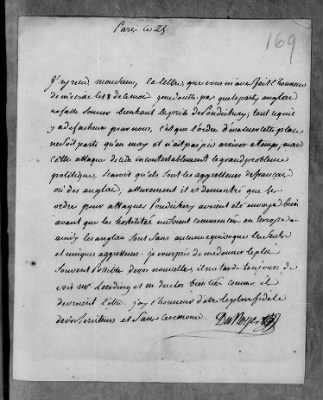 Paris ce 25
169
J'ay reçu monsieur, la lettre, que vous m'avez fait l'honneur
de m'ecrire le 18 de ce mois. je ne doute pas que le party anglais
ne fasse sonner bien haut la prise de Pondichery; tout ce qu'il
y a de facheux pour nous, c'est que l'ordre d'evacuer cette place
ne soit parti qu'en may et n'ait pas pû arriver a temps, mais
cette attaque decide incontestablement le grand probleme
politique, savoir qui sont les aggresseurs des français
ou des anglais, assurement il est demontré que les
ordres pour attaquer Pondichery avoient été envoyés bien
avant que les hostilités eussent commencées en europe
ainsy les anglais sont sans aucune equivoque les seuls
et uniques aggresseurs. je vous prie de me donner le plus
souvent possible de vos nouvelles, il me tarde toujours de
voir mr
et m. duclos
comme il
devroient l'être. j'ay l'honneur d'être le plus fidele
de vos serviteurs et sans ceremonie.